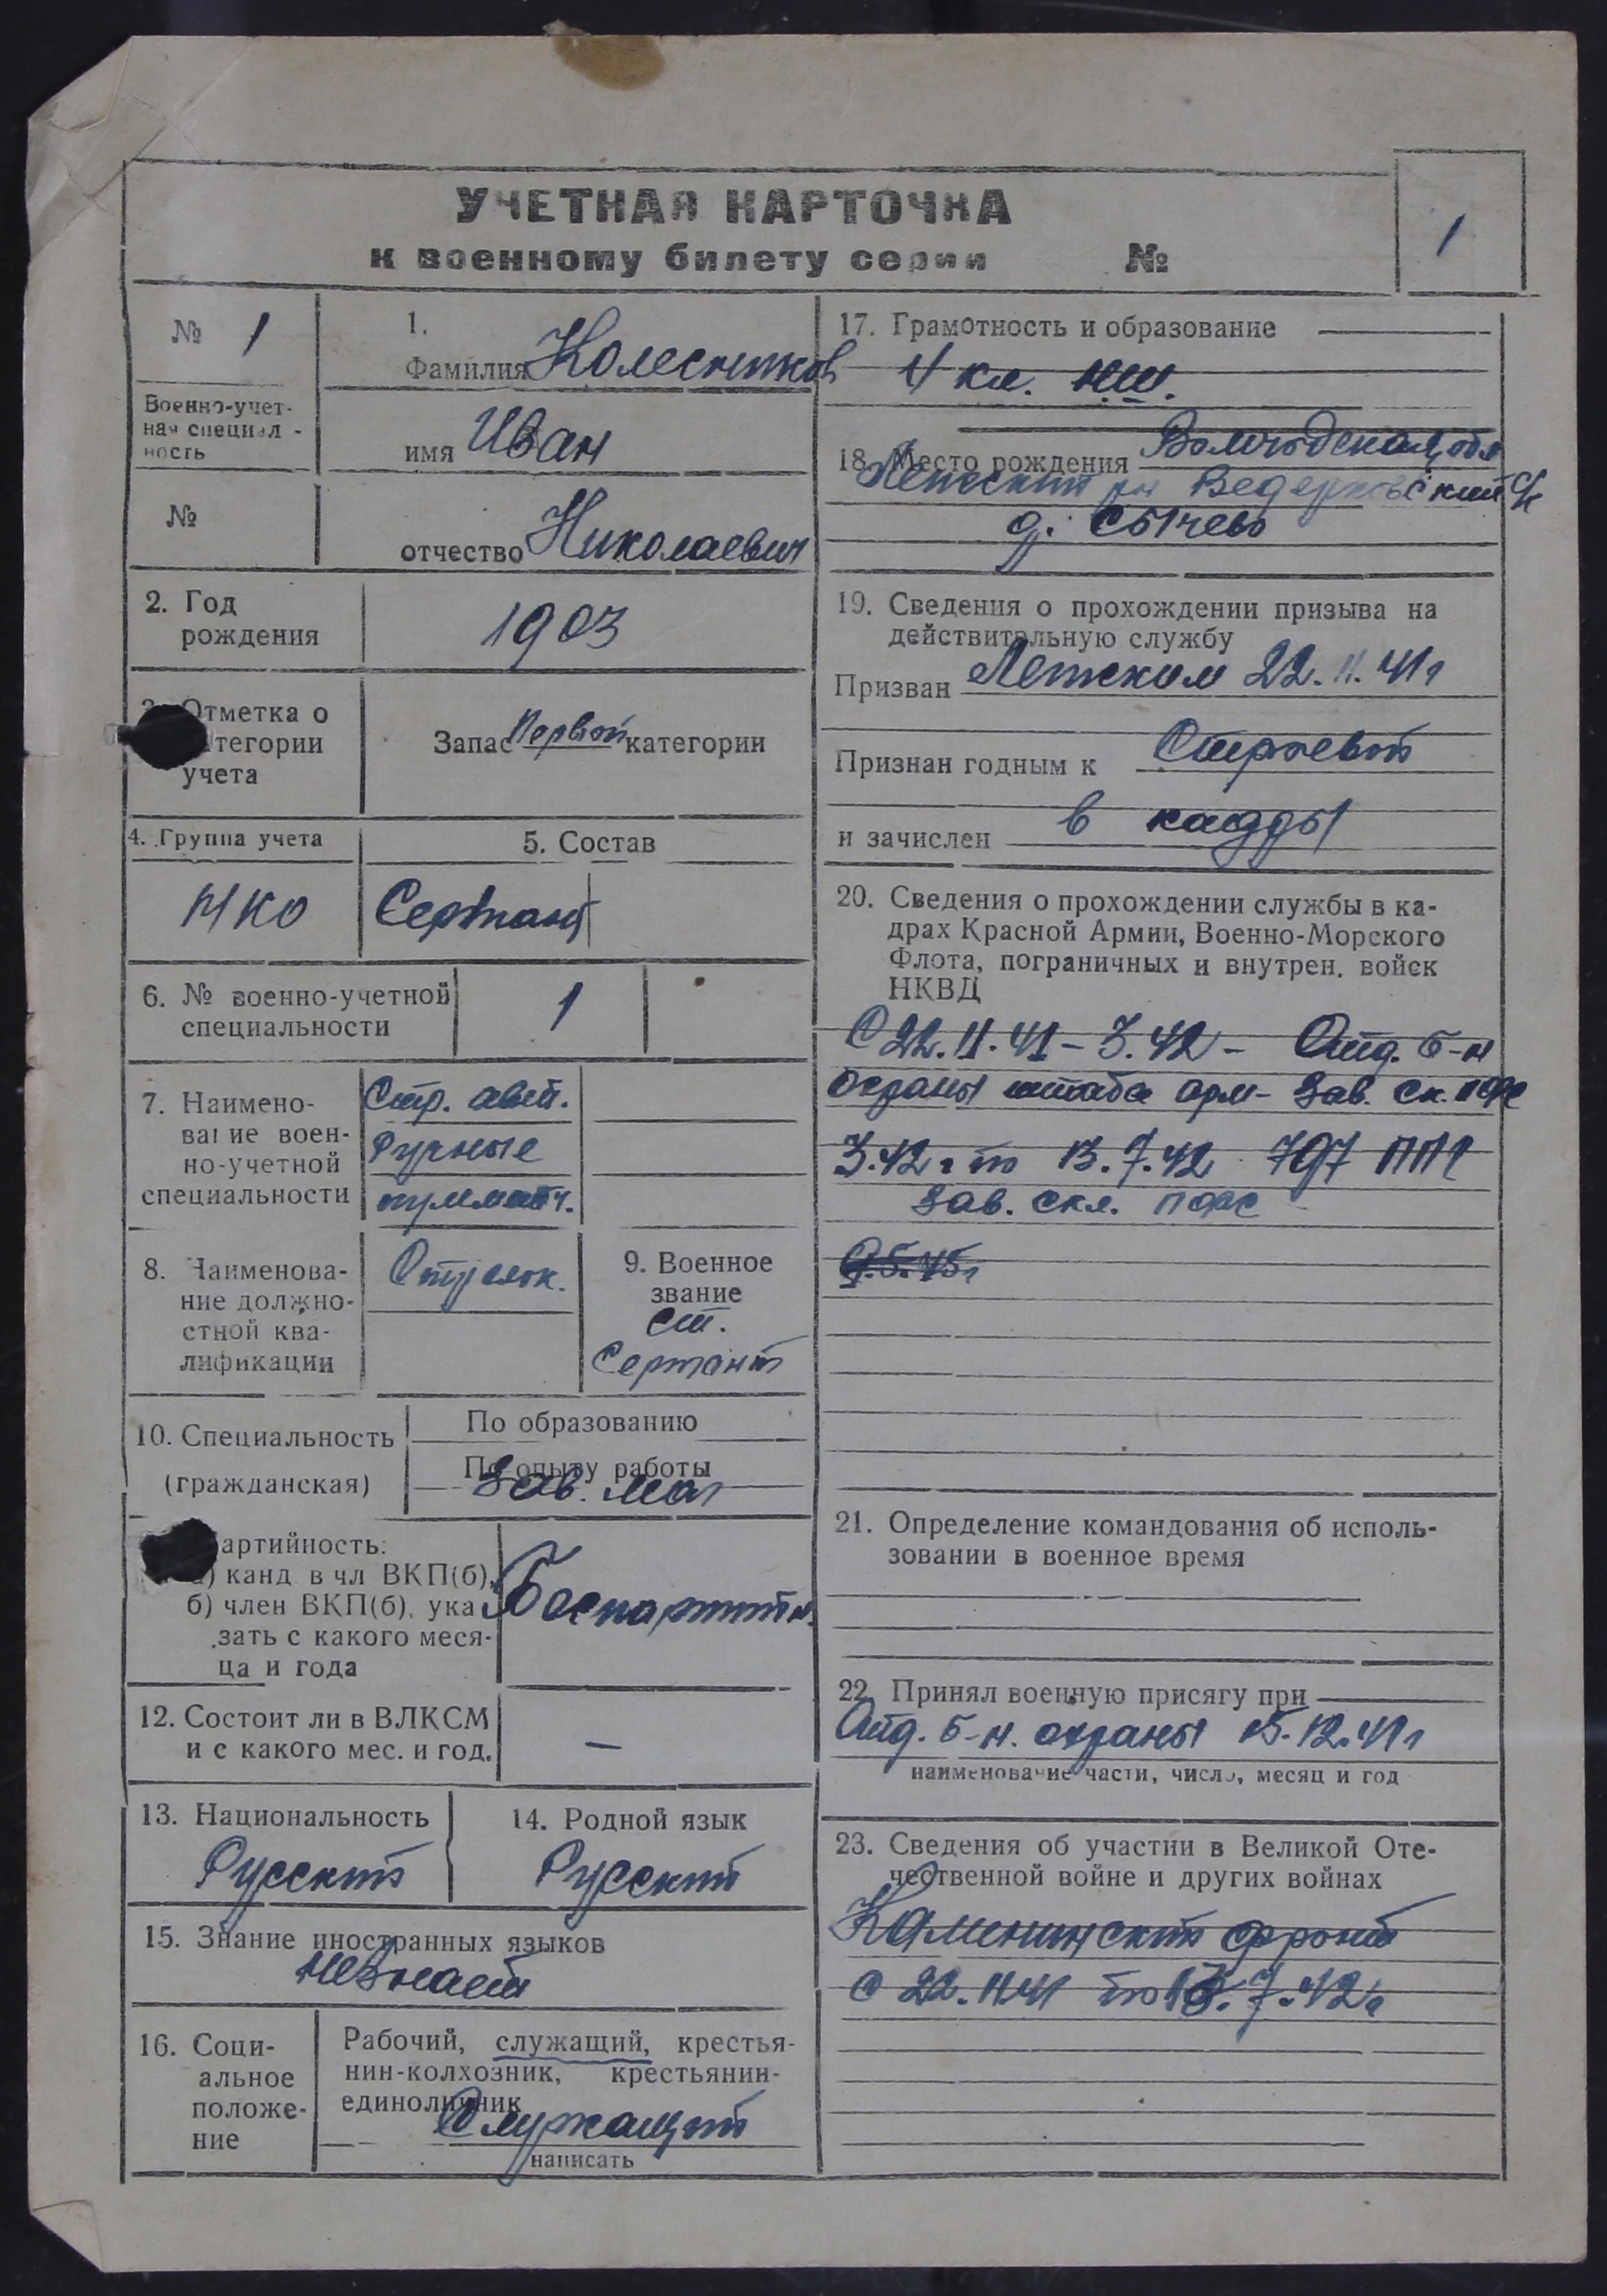 УЧЕТНАЯ КАРТОЧКА
к военному билету серии №
1
№ 1
Военно-учет-
ная специал -
ность
№
1.
Фамилия Колесников
имя Иван
отчество Николаевич
2. Год
рождения
1903
3. Отметка о
категории
учета
Запас Первой категории
4. Группа учета
НКО
5. Состав
Сержант
6. № военно-учетной
специальности
1
7. Наимено-
вание воен-
но-учетной
специальности
Стр. авт.
Ручные
пулмётч.
8. Наименова-
ние должно-
стной ква-
лификации
Стрелок.
9. Военное
звание
ст.
Сержант
10. Специальность
(гражданская)
По образованию
По опыту работы
Зав. маг
артийность:
а) канд в чл ВКП(б),
б) член ВКП(б), ука
зать с какого меся-
ца и года
Беспартийн.
12. Состоит ли в ВЛКСМ
и с какого мес. и год.
—
13. Национальность
Русский
14. Родной язык
Русский
15. Знание иностранных языков
не знает
16. Соци-
альное
положе-
ние
Рабочий, служащий, крестья-
нин-колхозник, крестьянин-
единоличник
Служащий
написать
17. Грамотность и образование
4 кл. НШ.
18. Место рождения Вологодская обл
р-н
д. Сычево
19. Сведения о прохождении призыва на
действительную службу
Призван 22.11.41г
Признан годным к Строевой
и зачислен в кадры
20. Сведения о прохождении службы в ка-
драх Красной Армии, Военно-Морского
Флота, пограничных и внутрен. войск
НКВД
С 22.11.41 - 3.42 - Отд. б-н
охраны штаба арм - Зав. ск. ПФС
3.42 г по 13.7.42 797 ППГ
Зав. скл. ПФС
9.5.45г
21. Определение командования об исполь-
зовании в военное время
22. Принял военную присягу при
Отд. б-н. охраны 15.12.41г
наименование части, число, месяц и год
23. Сведения об участии в Великой Оте-
чественной войне и других войнах
Калининский фронт
с 22.11.41 по 13.7.42г